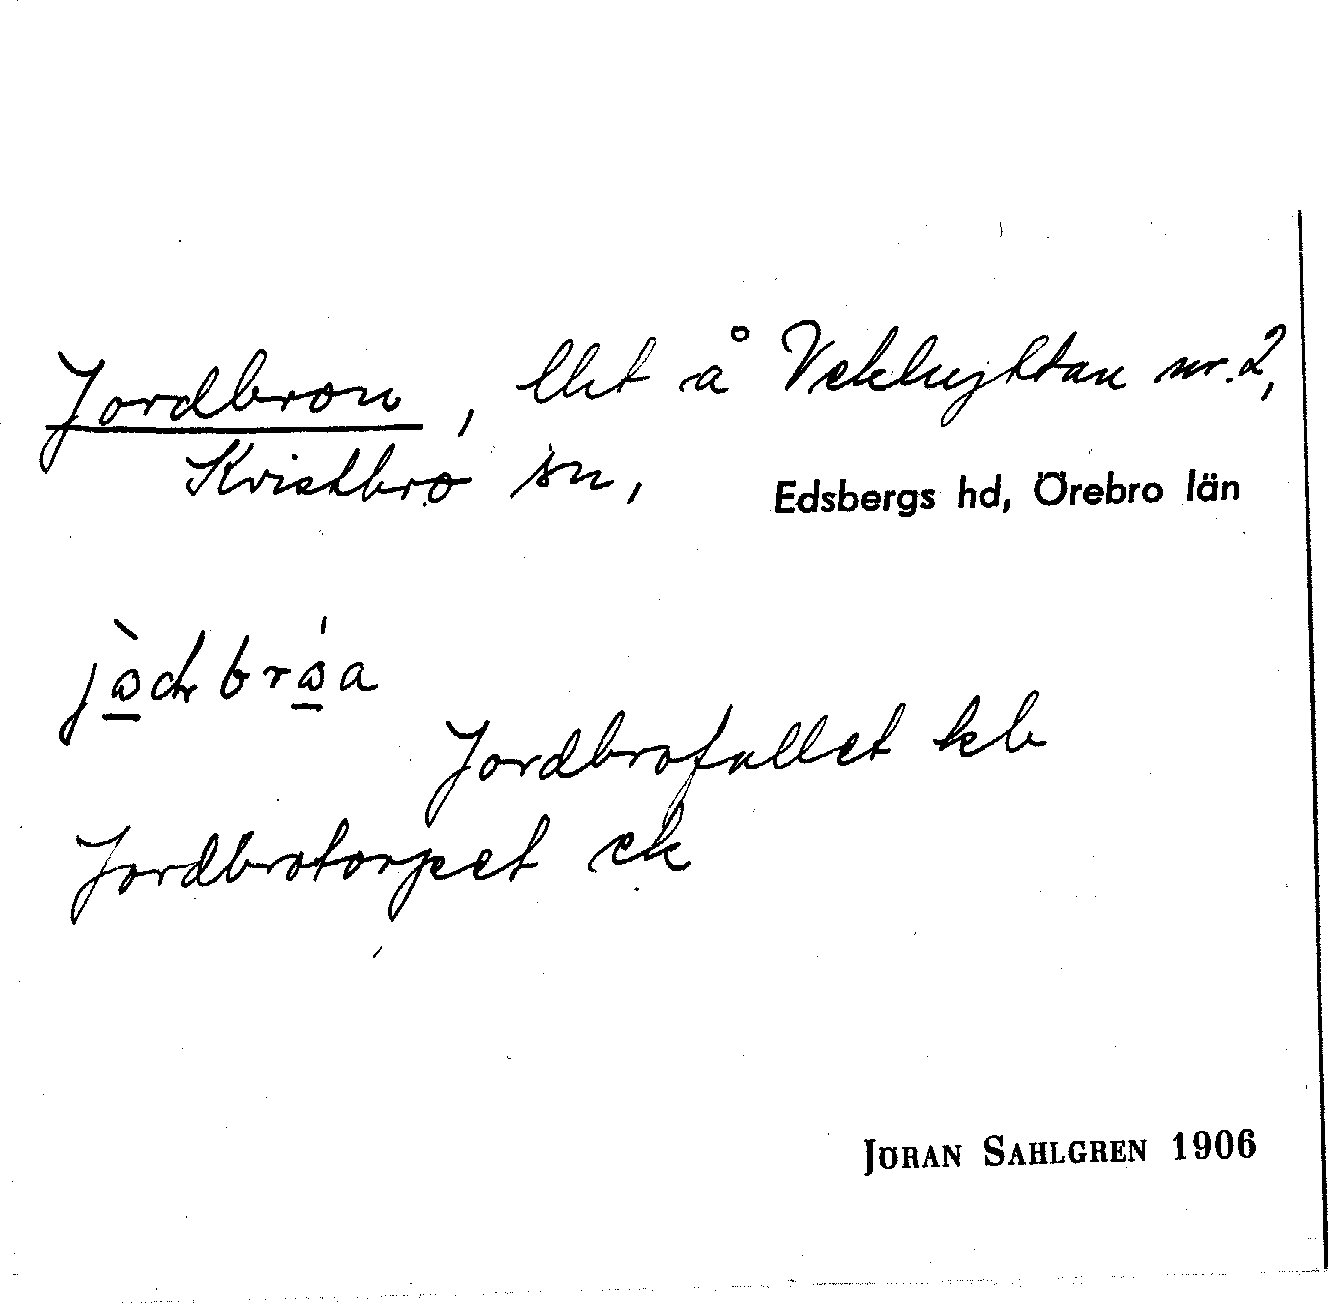 Jordbron, llht å Vekhyttan nr. 2,
Kvistbro sn, Edsbergs hd, Örebro län
Jordbrofallet kb
Jordbrotorpet ek
JÖRAN SAHLGREN 1906